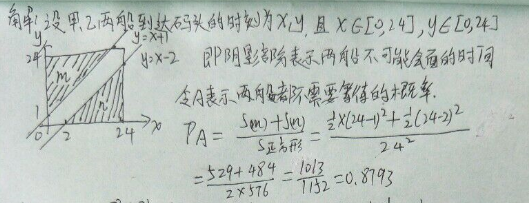 解: 设甲乙两船到达码头的时刻为x,y,且x∈[0,24],y∈[0,24]
y
y=x+1
24
y=x-2
m
n
1
0 2 24 x
即阴影部分表示两船不可能会面的时间
令A表示两船都不需要等待的概率.
PA = S(m)+S(n) / S正方形 = ½×(24-1)²+½(24-2)² / 24²
= 529+484 / 2×576 = 1013 / 1152 = 0.8793